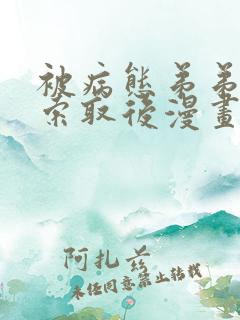 被病態弟弟
索取後漫畫
阿扎茲
未經同意禁止轉載